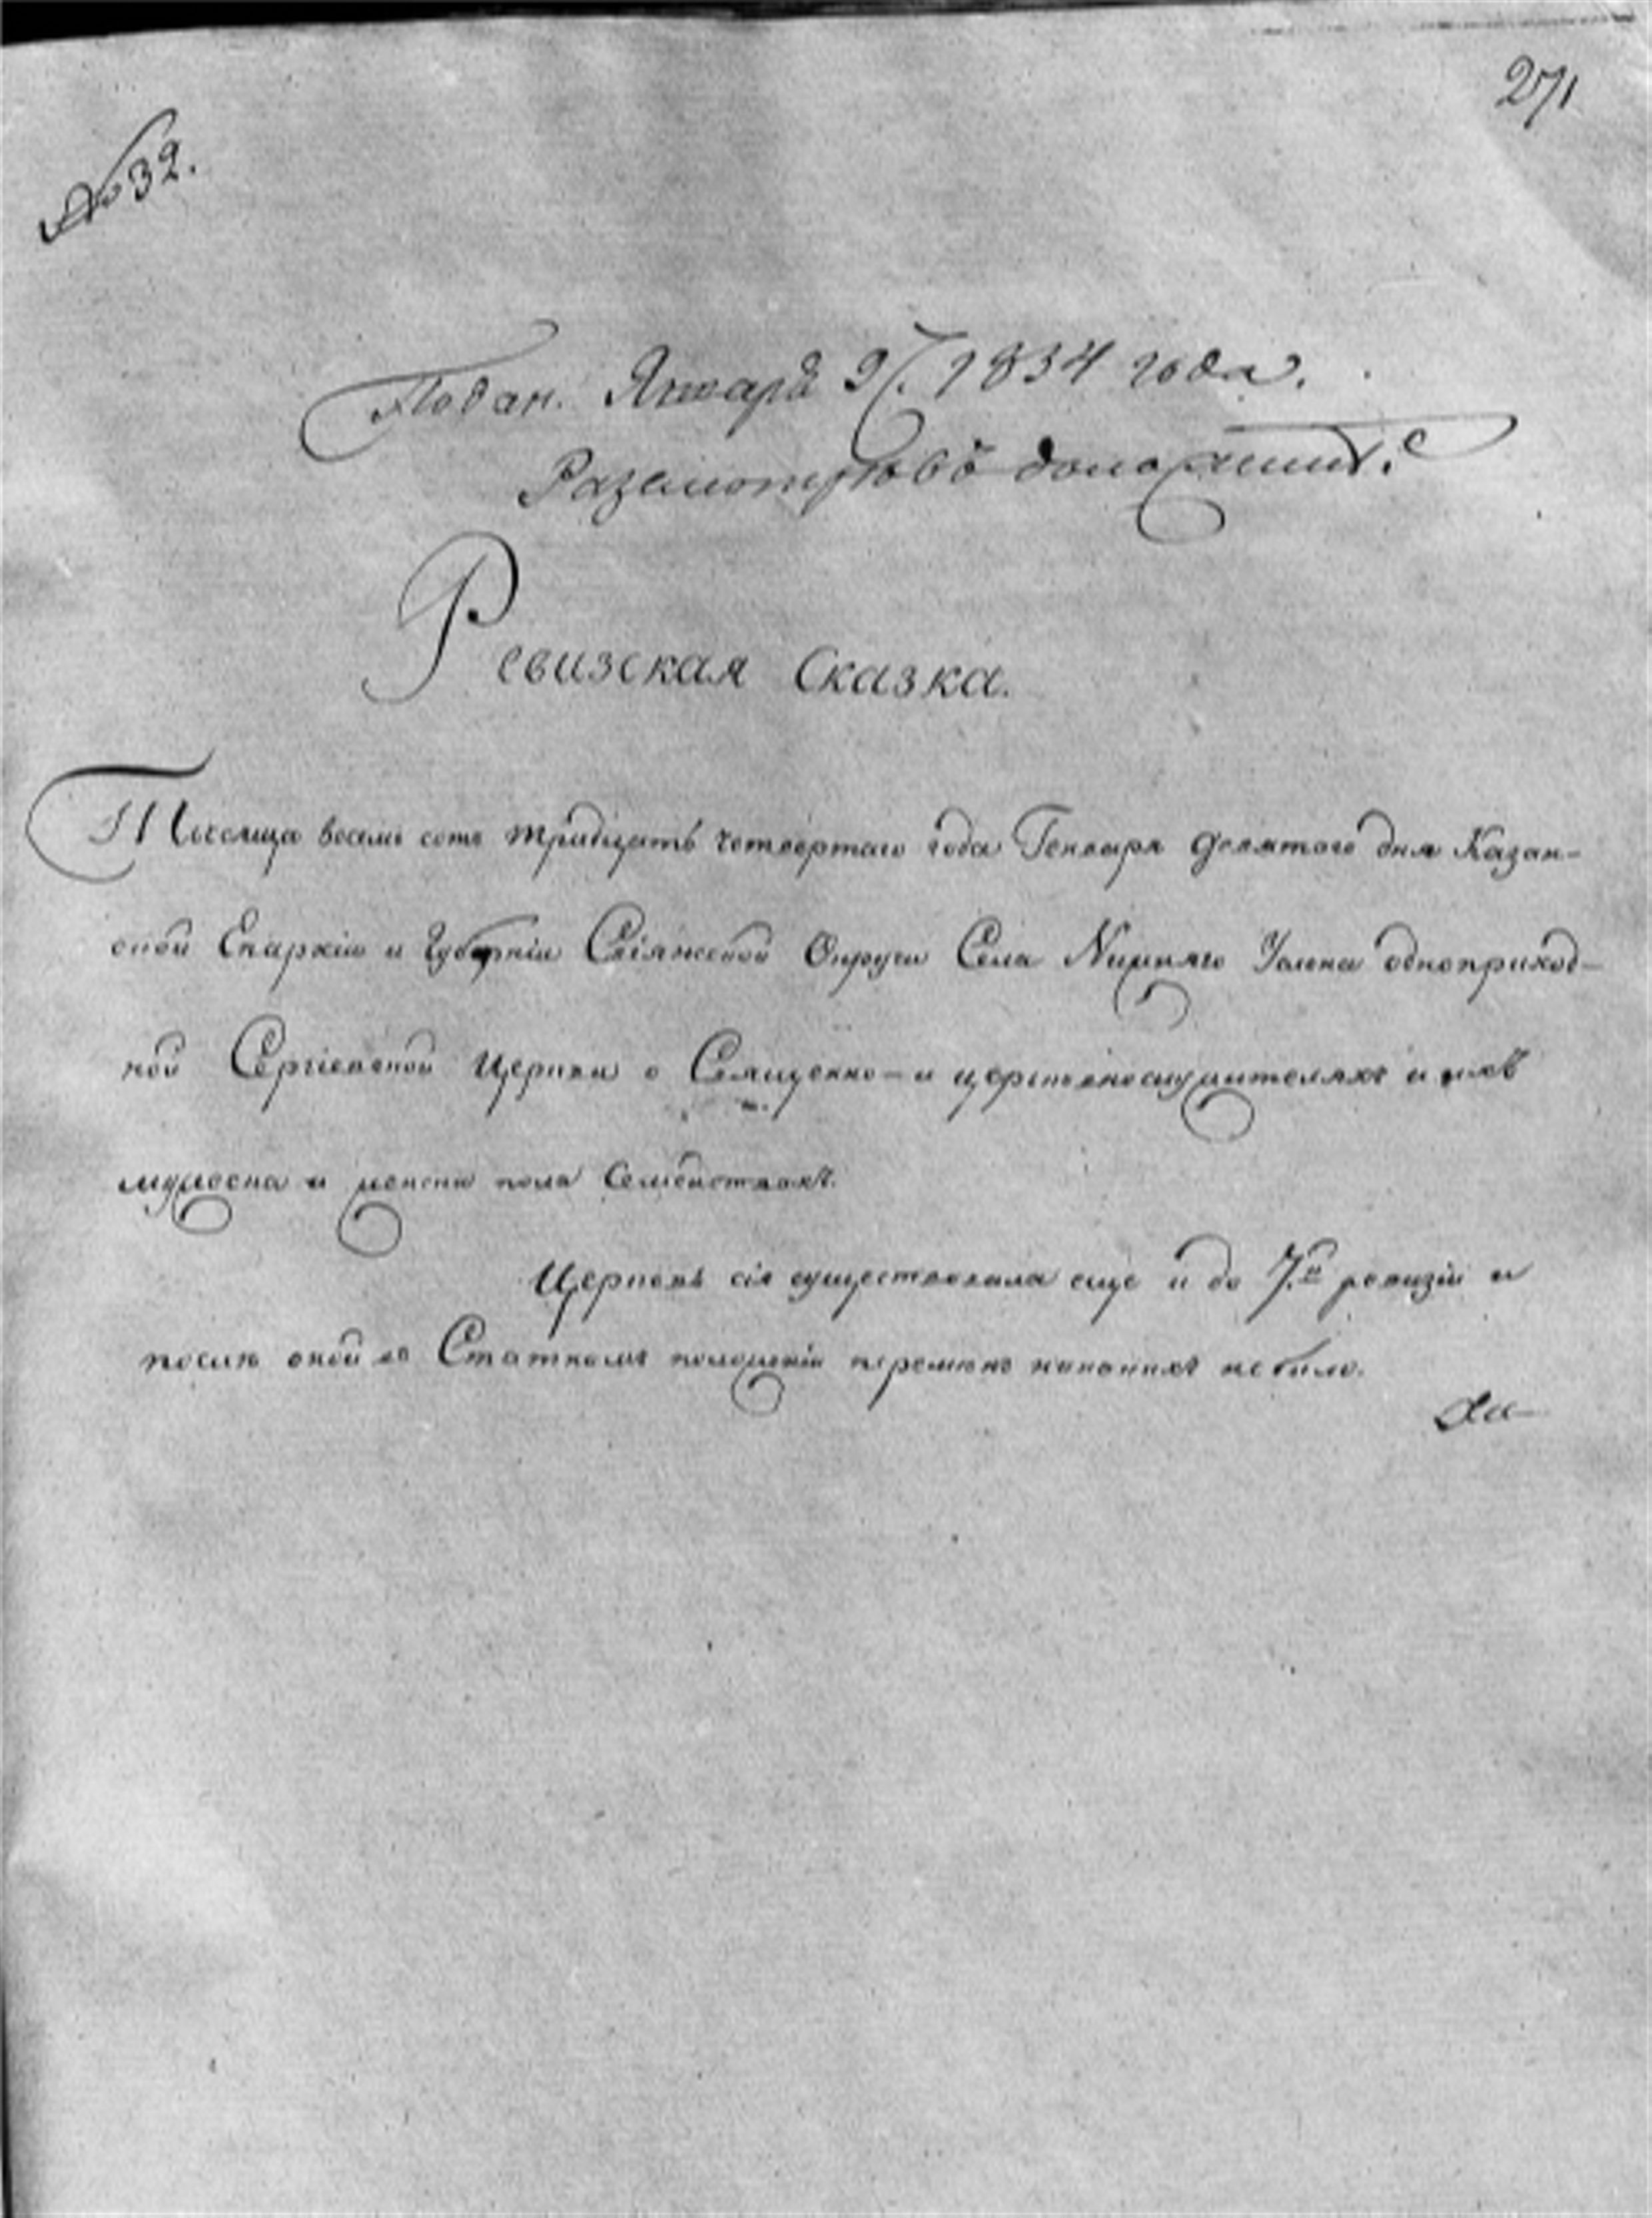 271
№ 32.
Подан. Января 9/. 1834 года.
Разсмотрѣвъ доложить.
Ревизская Сказка.
Тысяща восемь сотъ тридцать четвертаго года Генваря девятаго дня Казан-
ской Епархіи и Губерніи Свіяжской Округи Села Нижняго Услона одноприход-
ной Сергіевской Церкви о Священно- и церковнослужителяхъ и ихъ
мужеска и женска пола Семействахъ.
Церковь сія существовала еще и до 7.й ревизіи и
послѣ оной въ Статномъ положеніи перемѣнъ никакихъ небыло.